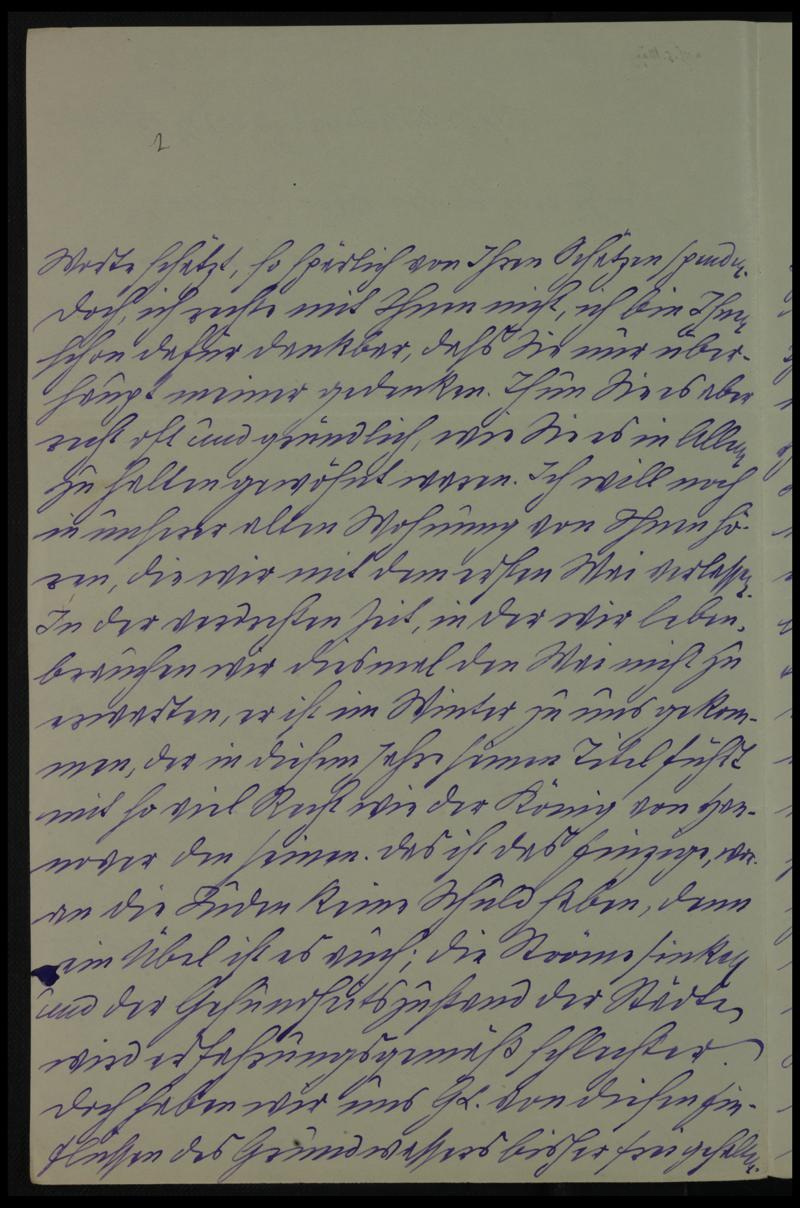 2
Worte schätzt, so spärlich von Ihren Schätzen spenden.
Doch, ich rechte mit Ihnen nicht, ich bin Ihnen
schon dafür dankbar, dass Sie nur über-
haupt meiner gedenken. Thun Sie es aber
recht oft und gründlich, wie Sie es in Allem
zu halten gewöhnt waren. Ich will noch
in unserer alten Wohnung von Ihnen hö-
ren, die wir mit dem ersten Mai verlassen.
In der verdrehten Zeit, in der wir leben,
brauchen wir diesmal den Mai nicht zu
erwarten, er ist im Winter zu uns gekom-
men, der in diesem Jahre seinen Titel führt
mit so viel Recht wie der König von Han-
nover den seinen. Das ist das Einzige, wor-
an die Juden keine Schuld haben, denn
ein Übel ist es auch; die Ströme sinken
und der Gesundheitszustand der Städte
wird erfahrungsgemäß schlechter.
Doch haben wir uns Gl. von diesen Ein-
flüssen des Grundwassers bisher frei gehalten.